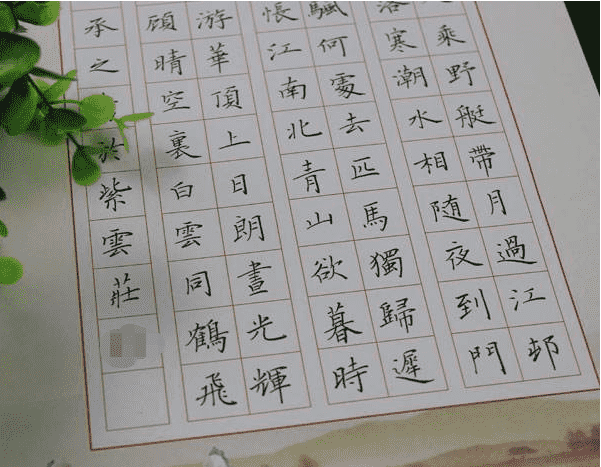 乘野艇帶月過江邨
寒潮水相隨夜到門
颿何處去匹馬獨歸遲
悵江南北青山欲暮時
游華頂上日朗晝光輝
顧晴空裏白雲同鶴飛
承之於紫雲莊